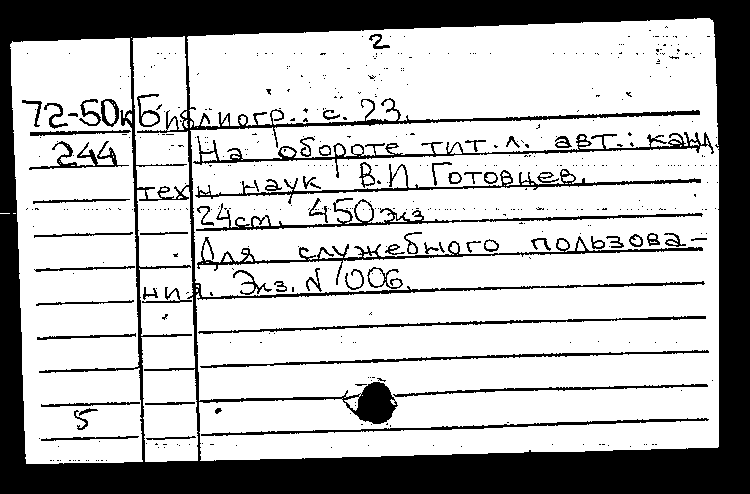 2
72-50к Библиогр.: с. 23.
244 На обороте тит. л. авт.: канд.
техн. наук В.И. Готовцев.
24см. 450экз.
Для служебного пользова-
ния. Экз. N 006.
5